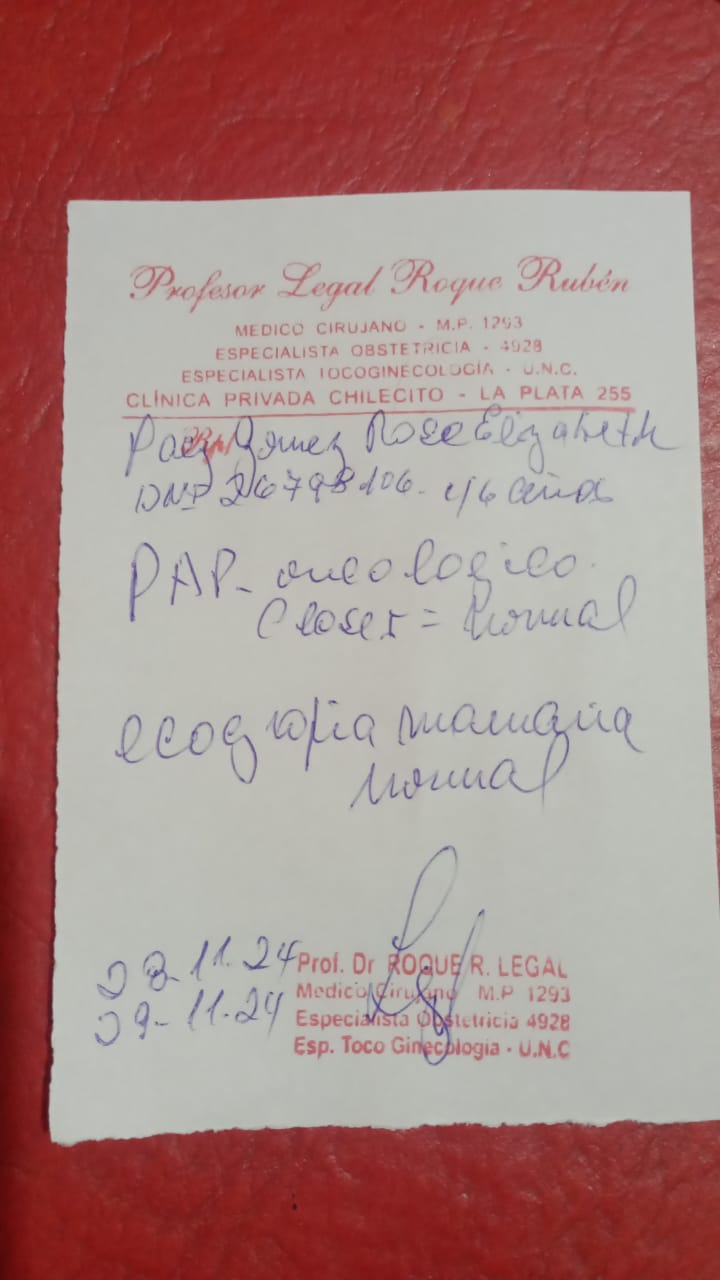 Profesor Legal Roque Rubén
MEDICO CIRUJANO - M.P. 1293
ESPECIALISTA OBSTETRICIA - 4928
ESPECIALISTA TOCOGINECOLOGÍA - U.N.C.
CLÍNICA PRIVADA CHILECITO - LA PLATA 255
Paez Gomez Rosa Elizabeth
DNI 26798106. 46 años
PAP- oncologico.
Clase I = Normal
ecografia mamaria
normal
28-11-24
29-11-24
Prof. Dr ROQUE R. LEGAL
Medico Cirujano M.P 1293
Especialista Obstetricia 4928
Esp. Toco Ginecologia - U.N.C